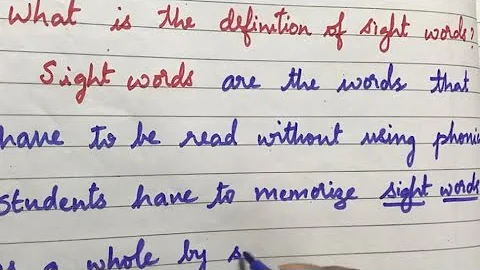 What is the definition of sight words?
Sight words are the words that
have to be read without using phonic
students have to memorize sight words
a whole by s